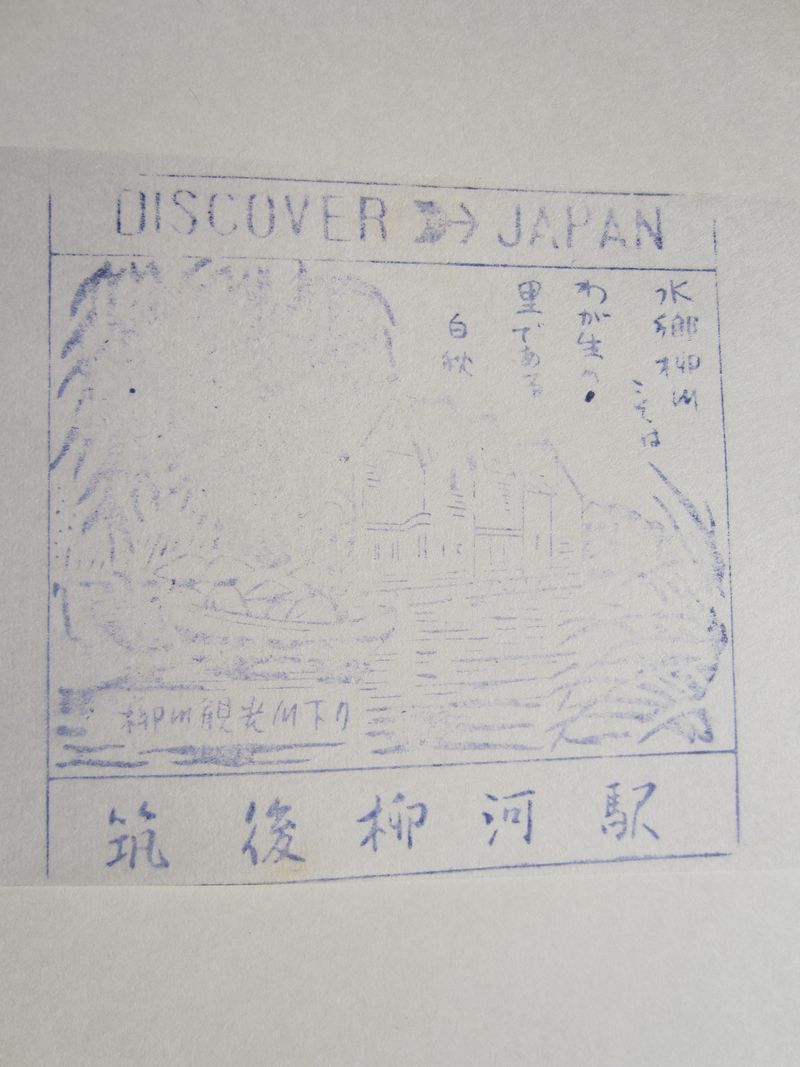 DISCOVER JAPAN
水郷柳川
こそは
わが生れ
里である
白秋
柳川観光川下り
筑後柳河駅